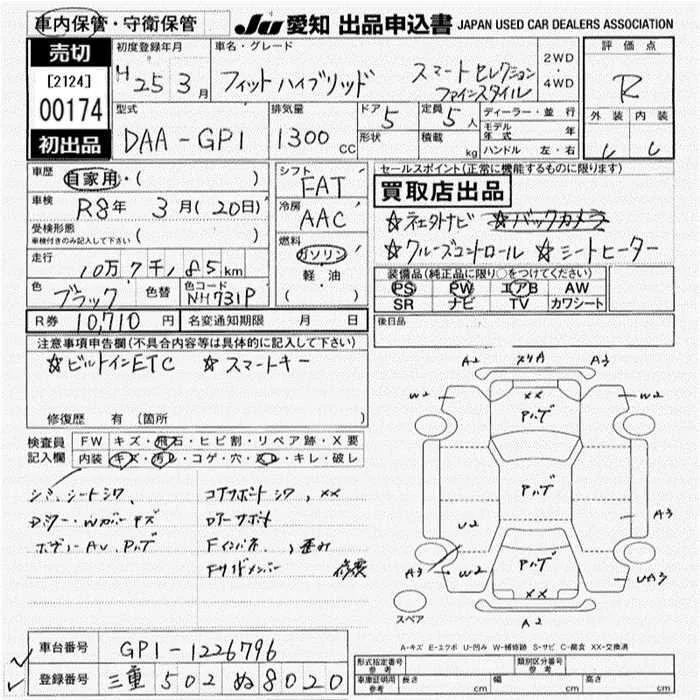 車内保管・守衛保管
JU 愛知 出品申込書 JAPAN USED CAR DEALERS ASSOCIATION
売切
[2124]
00174
初出品
初度登録年月
H25 3月
車名・グレード
フィットハイブリッド スマートセレクション
ファインスタイル
2WD
・
4WD
評価点
R
外装 内装
型式
DAA-GP1
排気量
1300 cc
ドア 5
形状
定員 5人
積載 kg
ディーラー・並行
モデル年式 年
ハンドル 左・右
車歴 自家用・( )
車検 R8年 3月(20日)
受検形態
車検付きのみ記入して下さい ( )
走行 10万7千185km
色 ブラック 色替 色コード NH731P
シフト FAT
冷房 AAC
燃料
ガソリン
軽油
( )
セールスポイント(正常に機能するものに限ります)
買取店出品
☆社外ナビ ☆バックカメラ
☆クルーズコントロール ☆シートヒーター
装備品(純正品に限り○をつけてください)
PS PW エアB AW
SR ナビ TV カワシート
後日品
R券 10,710円 名変通知期限 月 日
注意事項申告欄(不具合内容等は具体的に記入して下さい)
☆ビルトインETC ☆スマートキー
修復歴 有 〔箇所 〕
検査員
記入欄
FW キズ・飛石・ヒビ割・リペア跡・X要
内装 キズ・汚レ・コゲ・穴・スレ・キレ・破レ
シミ、シートシワ、
コアサポートシワ、XX
Fインパネ
歪み
Fサイドメンバー 修復
A2
A3
W2
XX
W2
U2
A3
A3
W2
UA3
XX
A2
スペア
A-キズ E-エクボ U-凹み W-補修跡 S-サビ C-腐食 XX-交換済
車台番号 GP1-1226796
登録番号 三重 502 ぬ 8020
形式指定番号
参考
類別区分番号
参考
車庫証明用
参考
長さ cm 幅 cm 高さ cm